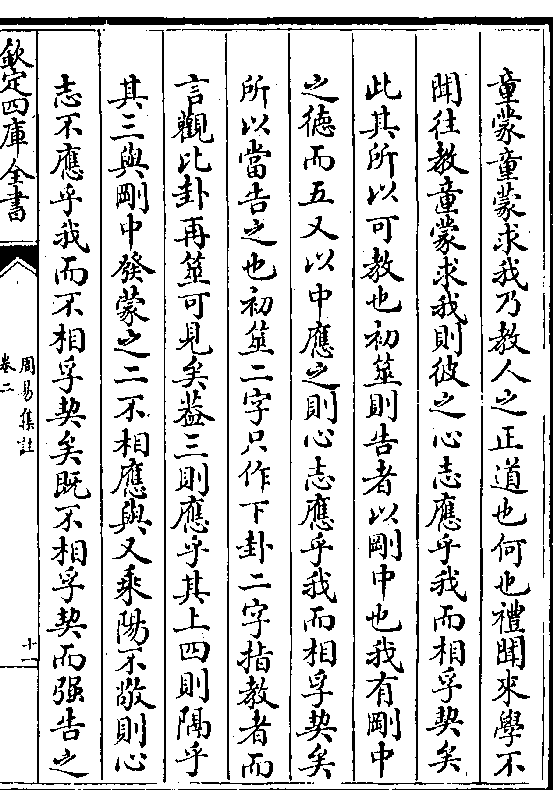 童蒙童蒙求我乃教人之正道也何也禮聞來學不
聞往教童蒙求我則彼之心志應乎我而相孚契矣
此其所以可教也初筮則告者以剛中也我有剛中
之德而五又以中應之則心志應乎我而相孚契矣
所以當告之也初筮二字只作下卦二字指教者而
言觀比卦再筮可見矣葢三則應乎其上四則隔乎
其三與剛中發蒙之二不相應與又乘陽不敬則心
志不應乎我而不相孚契矣既不相孚契而强告之
欽定四庫全書
周易集註
卷二
十一